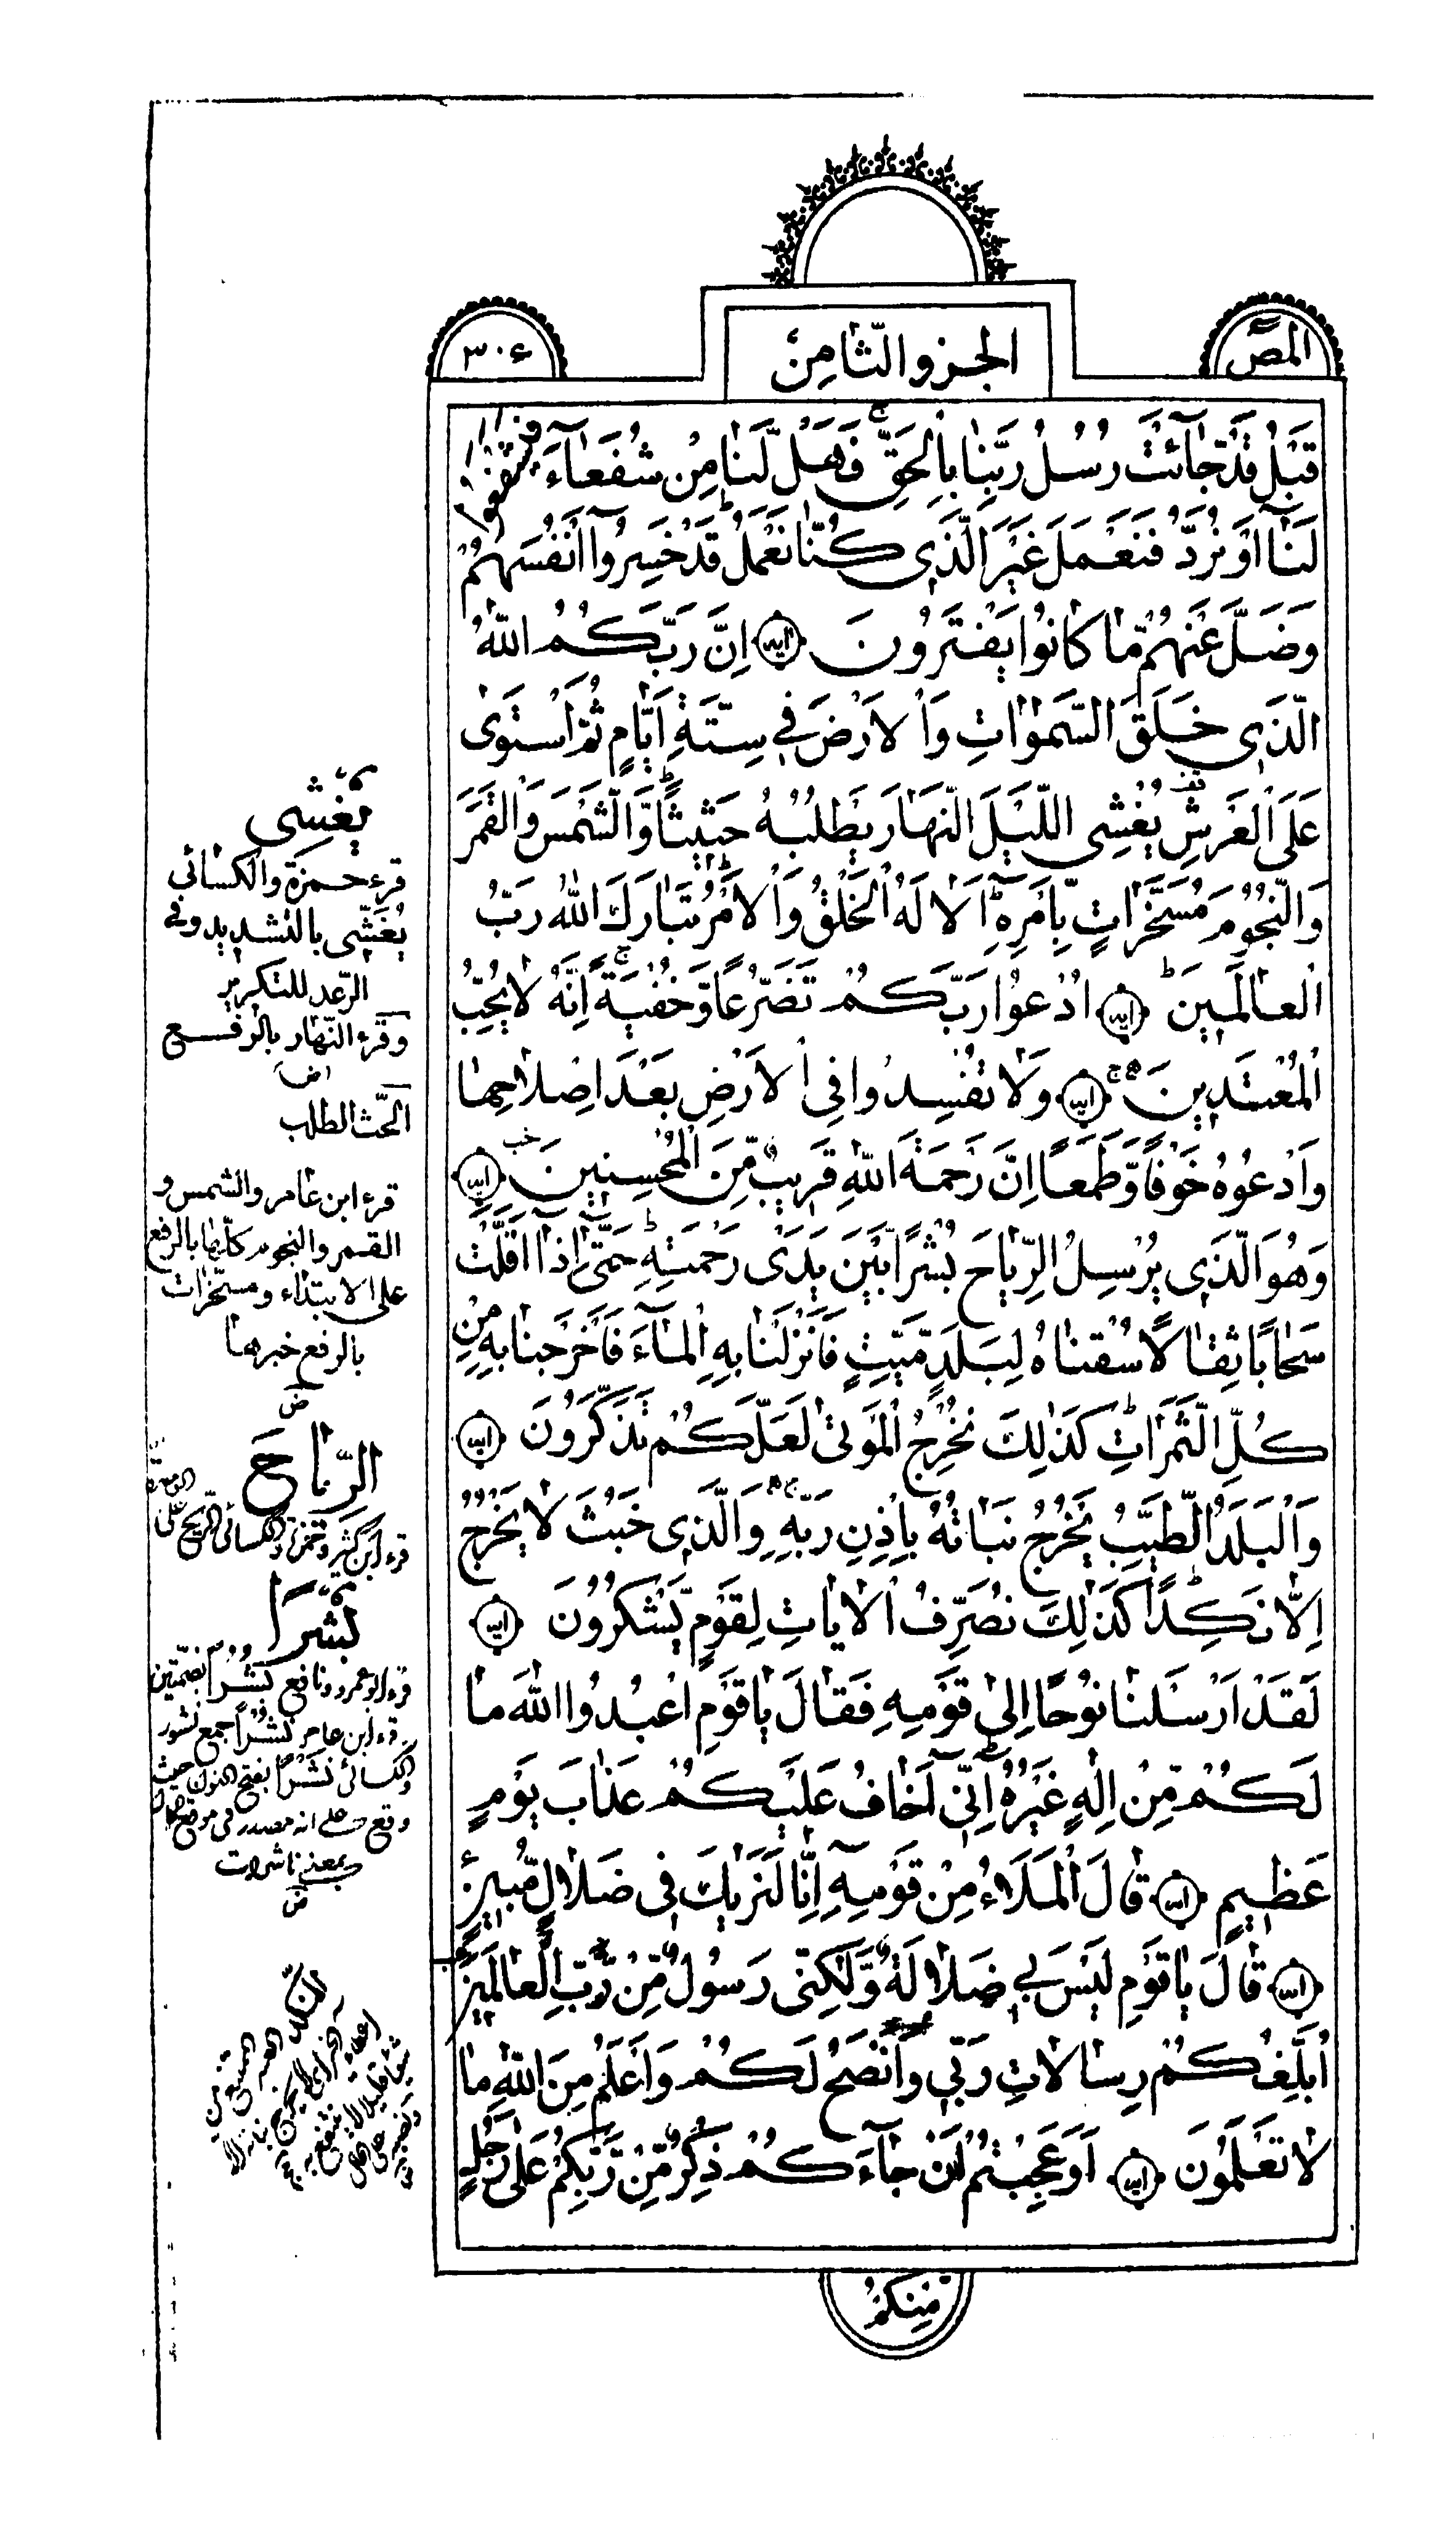 المص
الجزو الثّامن
٣٠٤
قَبْلُ قَدْ جٰآئَتْ رُسُلُ رَبِّنٰا بِالْحَقِّ فَهَلْ لَّنٰا مِنْ شُفَعٰآءَ فَيَشْفَعُوا
لَنٰآ اَوْ نُرَدُّ فَنَعْمَلَ غَيْرَ الَّذِي كُنّٰا نَعْمَلُ قَدْ خَسِرُوٓا اَنْفُسَهُمْ
وَضَلَّ عَنْهُمْ مّٰا كٰانُوا يَفْتَرُونَ اية اِنَّ رَبَّكُمُ اللّٰهُ
الَّذِي خَلَقَ السَّمٰوٰاتِ وَاْلاَرْضَ فِي سِتَّةِ اَيّٰامٍ ثُمَّ اسْتَوىٰ
عَلَى الْعَرْشِ يُغْشِي اللَّيْلَ النَّهٰارَ يَطْلُبُهُ حَثِيثًا وَّالشَّمْسَ وَالْقَمَرَ
وَالنُّجُومَ مُسَخَّرٰاتٍ بِاَمْرِهِٓ اَلاٰ لَهُ الْخَلْقُ وَاْلاَمْرُ تَبٰارَكَ اللّٰهُ رَبُّ
الْعٰالَمِينَ اية اُدْعُوا رَبَّكُمْ تَضَرُّعًا وَّخُفْيَةً اِنَّهُ لاٰ يُحِبُّ
الْمُعْتَدِينَ اية وَلاٰ تُفْسِدُوا فِي اْلاَرْضِ بَعْدَ اِصْلاٰحِهٰا
وَادْعُوهُ خَوْفًا وَّطَمَعًا اِنَّ رَحْمَةَ اللّٰهِ قَرِيبٌ مِّنَ الْمُحْسِنِينَ اية
وَهُوَ الَّذِي يُرْسِلُ الرِّيٰاحَ بُشْرًا بَيْنَ يَدَيْ رَحْمَتِهِ حَتّٰىٓ اِذٰٓا اَقَلَّتْ
سَحٰابًا ثِقٰالاً سُقْنٰاهُ لِبَلَدٍ مَّيِّتٍ فَاَنْزَلْنٰا بِهِ الْمٰآءَ فَاَخْرَجْنٰا بِهِ مِنْ
كُلِّ الثَّمَرٰاتِ كَذٰلِكَ نُخْرِجُ الْمَوْتىٰ لَعَلَّكُمْ تَذَكَّرُونَ اية
وَالْبَلَدُ الطَّيِّبُ يَخْرُجُ نَبٰاتُهُ بِاِذْنِ رَبِّهِ وَالَّذِي خَبُثَ لاٰ يَخْرُجُ
اِلاّٰ نَكِدًا كَذٰلِكَ نُصَرِّفُ اْلاٰيٰاتِ لِقَوْمٍ يَّشْكُرُونَ اية
لَقَدْ اَرْسَلْنٰا نُوحًا اِلىٰ قَوْمِهِ فَقٰالَ يٰا قَوْمِ اعْبُدُوا اللّٰهَ مٰا
لَكُمْ مِّنْ اِلٰهٍ غَيْرُهُ اِنِّيٓ اَخٰافُ عَلَيْكُمْ عَذٰابَ يَوْمٍ
عَظِيمٍ اية قٰالَ الْمَلَاءُ مِنْ قَوْمِهِٓ اِنّٰا لَنَرٰيكَ فِي ضَلاٰلٍ مُّبِينٍ
اية قٰالَ يٰا قَوْمِ لَيْسَ بِي ضَلاٰلَةٌ وَّلٰكِنِّي رَسُولٌ مِّنْ رَّبِّ الْعٰالَمِينَ
اُبَلِّغُكُمْ رِسٰالاٰتِ رَبِّي وَاَنْصَحُ لَكُمْ وَاَعْلَمُ مِنَ اللّٰهِ مٰا
لاٰ تَعْلَمُونَ اية اَوَعَجِبْتُمْ اَنْ جٰآءَكُمْ ذِكْرٌ مِّنْ رَّبِّكُمْ عَلىٰ رَجُلٍ
مِّنْكُمْ
يُغْشِي
قرء حمزة والكسائي
يُغَشّي بالتشديد وفي
الرّعد للتكرير
وقرء النّهار بالرفع
ض
الحثّ الطلب
قرء ابن عامر والشمس و
القمر والنجوم كلّها بالرفع
على الابتداء ومسخّرات
بالرفع خبرها
ض
الرّيٰاحَ
قرء ابن كثير وحمزة والكسائي الريح على
بُشْرًا
قرء ابو عمرو ونافع نُشُرًا بضمّتين
وقرء ابن عامر نُشْرًا جمع نشور
والكسائي نَشْرًا بفتح النون حيث
وقع على انه مصدر في موقع الحال
بمعنى ناشرات
ض
النّكد